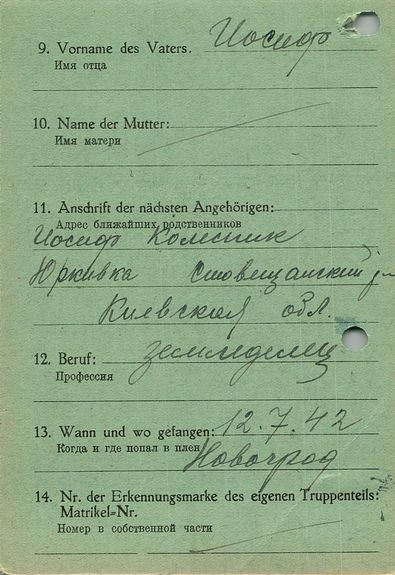 9. Vorname des Vaters. Иосиф
Имя отца
10. Name der Mutter:
Имя матери
11. Anschrift der nächsten Angehörigen:
Адрес ближайших родственников
Иосиф Колесник
Юркивка Ставещанский
Киевская обл.
12. Beruf: земледелец
Профессия
13. Wann und wo gefangen: 12.7.42
Когда и где попал в плен Новоград
14. Nr. der Erkennungsmarke des eigenen Truppenteils:
Matrikel-Nr.
Номер в собственной части